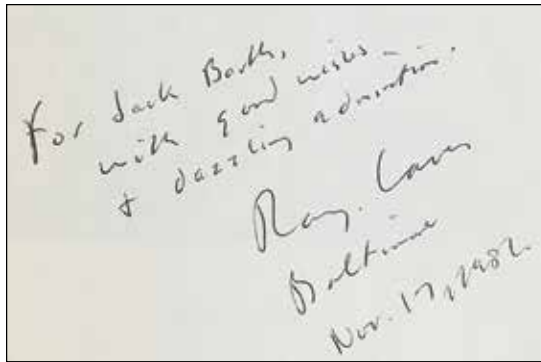 For Jack Barth,
with good wishes –
+ dazzling admiration.
Ray. Carver
Baltimore
Nov. 17, 1982